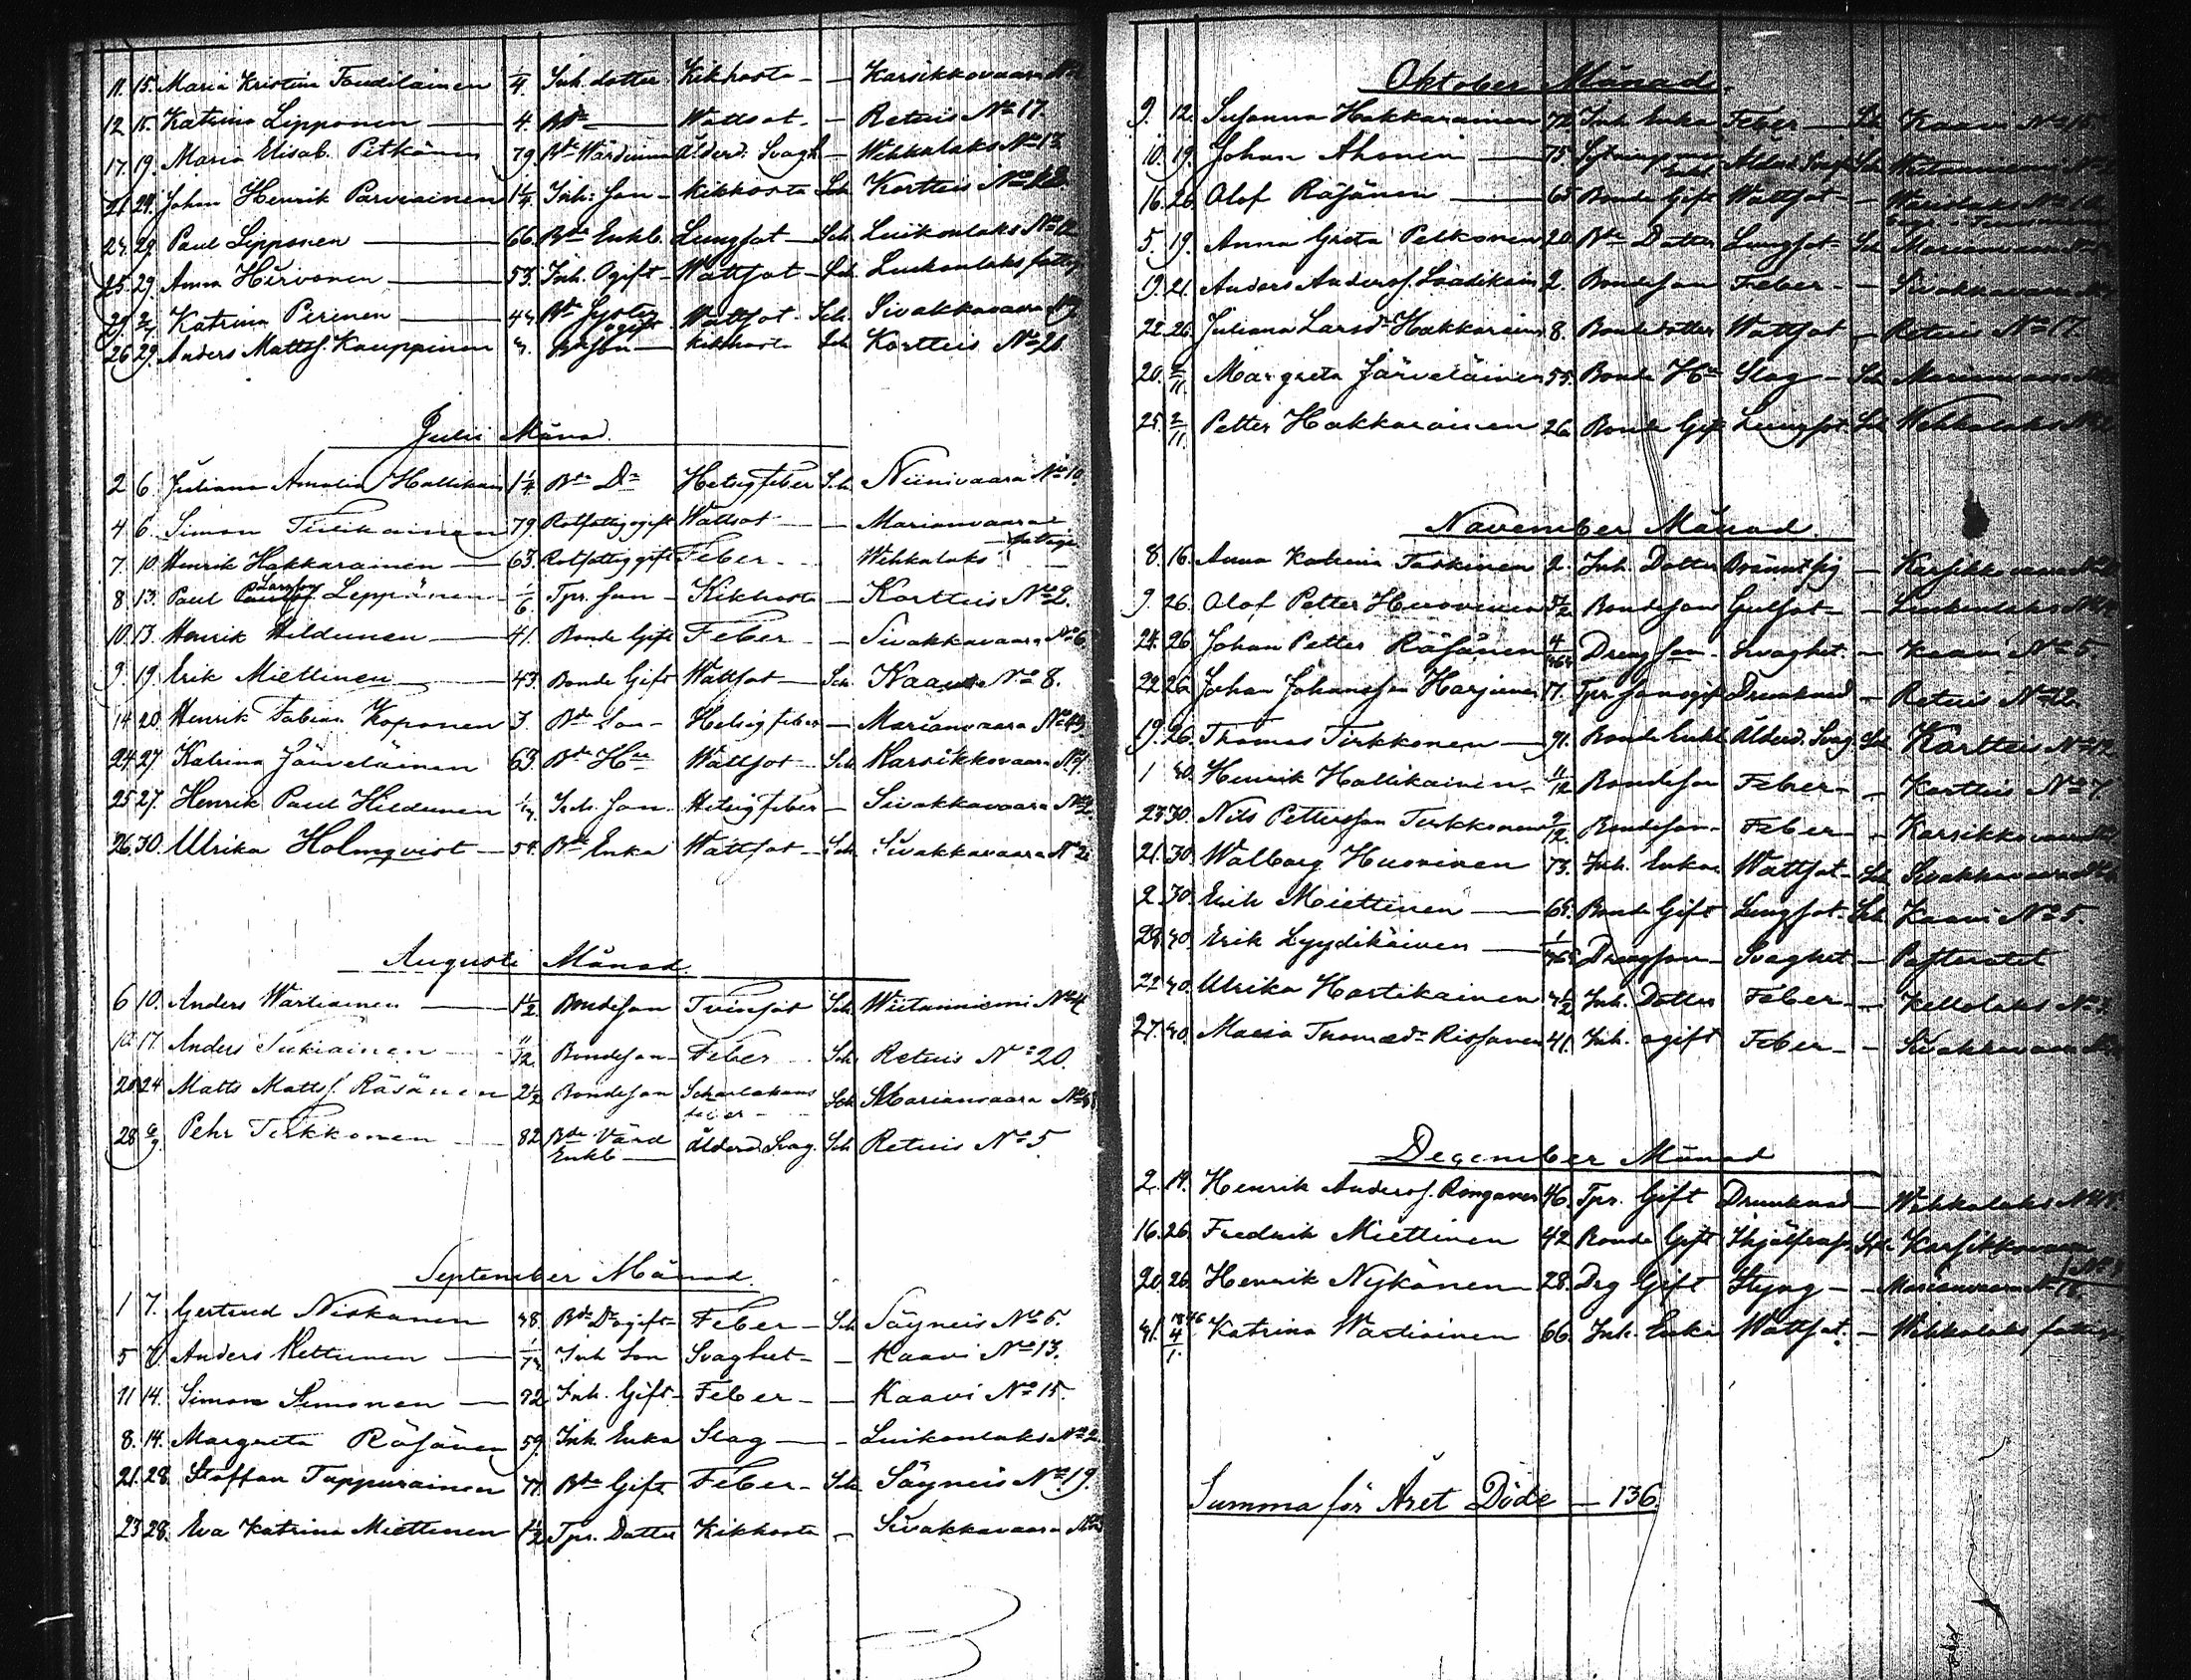 11. 15. Maria Kristina Toudilainen 1/4 Inh. dotter Kikhosta - - Karsikkovaara
12 15. Katrina Lipponen 4. Bde Wattsot - - Retuis No 17.
17. 19. Maria Elisab. Pitkänen 79 Bde Wärdinna Ålderd. Svagh - Wehkalaks No 13.
21. 24. Johan Henrik Parviainen 1 1/4 Inh: Son - Kikhosta Sch Kortteis No
24. 29. Paul Lipponen 66. Bde Enkl. Lungsot - Sch. Luikonlaks No
25. 29. Anna Hirvonen 53. Inh. Ogift - Wattsot - Sch Luikonlaks fattig
27. 2/7 Katrina Perinen 44 Bde Syster ogift Wattsot - Sch. Sivakkavaara
26 29. Anders Mattss. Kauppinen Bdeson - Kikhosta Sch Kortteis No 21.
Julii Månad.
2 6. Juliana Amalia Hallikain 1 1/4 Bde Dr Hetsig feber Sch Niinivaara No 10
4 6. Simon Tiilikainen 79. Rotfattig ogift Wattsot - - Marianvaara fattig
7. 10. Henrik Hakkarainen - 63. Rotfattig gift Feber - - Wehkalaks -
8 13. Paul Larsson Leppänen - 1/6. Tpr. Son - Kikhosta - Kortteis No 2.
10. 13. Henrik Hildunen - 41. Bonde Gift Feber - - Sivakkavaara No 6.
9. 19. Erik Miettinen - 43. Bonde Gift Wattsot - Sch. Kaavi No 8.
14 20. Henrik Fabian Koponen 3. Bde Son - Hetsig feber - Marianvaara No
24. 27 Katrina Järveläinen 63. Bde Hu Wattsot - Sch Karsikkovaara
25 27. Henrik Paul Hildunen Inh. Son. Hetsig feber - Sivakkavaara
26. 30. Ulrika Holmqvist - 54. Bde Enka Wattsot - Sch. Sivakkavaara No 2.
Augusti Månad.
6 10. Anders Wartiainen 1 1/2 Bondeson Tvinsot Sch Wiitaniemi No 4
10 17. Anders Tukiainen - 11/12. Bondeson - Feber - Sch Retuis No 20.
20 24 Matts Mattss. Räsänen 2 1/2 Bondeson Scharlakans feber - Sch Marianvaara
28. 6/9. Pehr Tirkkonen - 82 Bde Värd Enkl - Ålderd. Svag. Sch Retuis No 5
September Månad.
1 7. Gertrud Niskanen 48. Bde Dr ogift - Feber - Sch Säyneis No 6.
5 7. Anders Kettunen - Inh Son Svaghet - - Kaavi No 13.
11 14. Simon Simonen - 72 Inh. Gift - Feber - - Kaavi No 15.
8. 14. Margreta Räsänen 59. Inh. Enka Slag - - Luikonlaks No 2.
21. 28. Staffan Tappurainen 77. Bde Gift Feber - Sch Säyneis No 19.
23 28. Eva Katrina Miettinen 1 1/2 Tpr. Dotter Kikhosta - Sivakkavaara
Oktober Månad.
9. 12. Susanna Hakkarainen 72 Inh Enka Feber - Sch Kaavi No
10. 19. Johan Ahonen - 75 Sytningsman Enkl Ålderd Svag Sch Wiitaniemi
16. 26. Olof Räsänen - 65 Bonde Gift Wattsot -
5. 19. Anna Greta Pelkonen 20. Bde Dotter Lungsot - Sch Marianvaara
19. 21. Anders Anderss. Löödikäin 2. Bondeson Feber - - Sivakkavaara
22. 26. Juliana Larsdr Hakkarain 8. Bondedotter Wattsot - Retuis No 17.
20. 2/11 Margreta Järveläinen 55. Bonde Hu Slag - Sch Marianvaara
25. 2/11. Petter Hakkarainen 26 Bonde Gift Lungsot Sch Wehkalaks
November Månad.
8. 16. Anna Katrina Taskinen 2. Inh. Dotter Brännt sig - Karsikkovaara
9. 26. Olof Petter Huovinen 5/12 Bondeson Gulsot - Luikonlaks
24. 26. Johan Petter Räsänen 4/365 Dreng son. Svaghet. - Kaavi No 5
22 26. Johan Johansson Harjunen 17. Tpr. Son ogift Drunknad - Retuis No 12.
19. 26. Thomas Tirkkonen - 71. Bonde Enkl Ålderd. Svag Sch Kortteis No 12
1 30. Henrik Hallikainen - 11/12 Bondeson Feber - - Kortteis No 7.
23 30. Nils Pettersson Tirkkonen 9/12. Bondeson - Feber - - Karsikkovaara
21. 30. Walborg Huovinen 73. Inh. Enka Wattsot - Sch Sivakkavaara
2 30. Erik Miettinen - 65. Bonde Gift Lungsot - Sch Kaavi No 5.
29. 30. Erik Lyydikäinen - 1/365 Drengson - Svaghet - Pastoratet
22 30. Ulrika Hartikainen 3 1/2 Inh. Dotter Feber - - Kellolaks No 3.
27. 30. Maria Thomædr Rissanen 41. Inh. ogift Feber - - Sivakkavaara
December Månad
2. 14. Henrik Anderss. Ronganen 46. Tpr. Gift Drunknad - Wehkalaks
16. 26. Fredrik Miettinen 42 Bonde Gift Ihjälfrus. Karsikkovaara
20. 26. Henrik Nykänen 28. Drg Gift Styng - - Marianvaara No 16.
31. 1846 4/1. Katrina Wartiainen 66. Inh. Enka Wattsot. - Wehkalaks fattig
Summa för Året Döde - 136.